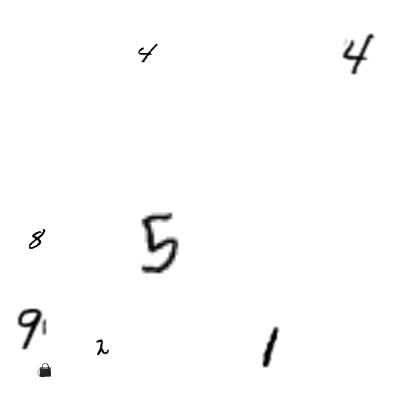 4 4
8 5
9 2 1